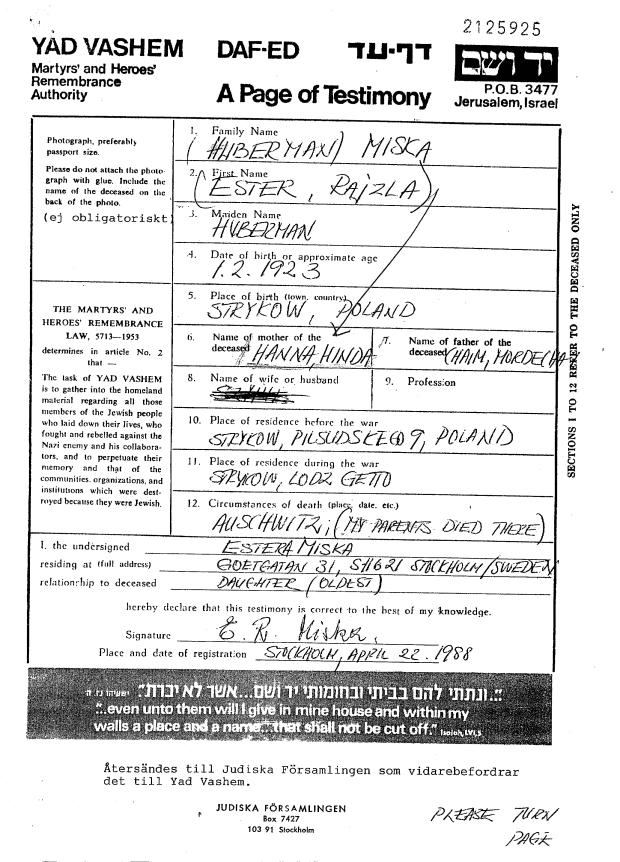 2125925
YAD VASHEM DAF-ED דף-עד יד ושם
Martyrs' and Heroes'
Remembrance
Authority
A Page of Testimony
P.O.B. 3477
Jerusalem, Israel
Photograph, preferably
passport size.
Please do not attach the photo-
graph with glue. Include the
name of the deceased on the
back of the photo.
(ej obligatoriskt)
THE MARTYRS' AND
HEROES' REMEMBRANCE
LAW, 5713—1953
determines in article No. 2
that —
The task of YAD VASHEM
is to gather into the homeland
material regarding all those
members of the Jewish people
who laid down their lives, who
fought and rebelled against the
Nazi enemy and his collabora-
tors, and to perpetuate their
memory and that of the
communities, organizations, and
institutions which were dest-
royed because they were Jewish.
1. Family Name
(HUBERMAN) MISKA
2. First Name
(ESTER, RAJZLA)
3. Maiden Name
HUBERMAN
4. Date of birth or approximate age
1.2.1923
5. Place of birth (town, country)
STRYKOW, POLAND
6. Name of mother of the
deceased HANNA, HINDA
7. Name of father of the
deceased CHAIM, MORDECHA
8. Name of wife or husband
9. Profession
10. Place of residence before the war
STRYKOW, PILSUDSKEGO 9, POLAND
11. Place of residence during the war
STRYKOW, LODZ GETTO
12. Circumstances of death (place, date, etc.)
AUSCHWITZ, (MY PARENTS DIED THERE)
SECTIONS 1 TO 12 REFER TO THE DECEASED ONLY
I, the undersigned ESTERA MISKA
residing at (full address) GOETGATAN 31, S11621 STOCKHOLM/SWEDEN
relationship to deceased DAUGHTER (OLDEST)
hereby declare that this testimony is correct to the best of my knowledge.
Signature E. R. Miska.
Place and date of registration STOCKHOLM, APRIL 22. 1988
"...ונתתי להם בביתי ובחומותי יד ושם...אשר לא יכרת"
"..even unto them will I give in mine house and within my
walls a place and a name...that shall not be cut off." Isaiah, LVI,5
Återsändes till Judiska Församlingen som vidarebefordrar
det till Yad Vashem.
JUDISKA FÖRSAMLINGEN
Box 7427
103 91 Stockholm
PLEASE TURN
PAGE